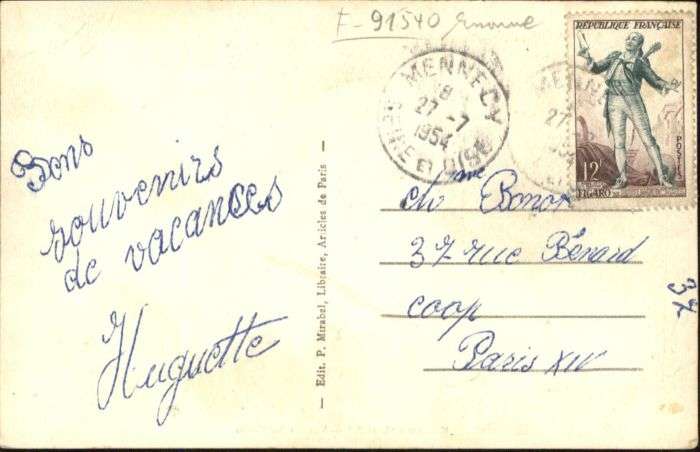 F-91540
RÉPUBLIQUE FRANÇAISE
MENNECY
18
27-7
1954
SEINE et OISE
POSTES
12F
FIGARO
Bons
souvenirs
de vacances
Huguette
— Edit. P. Mirabel, Libraire, Articles de Paris —
Mme
37 rue Bénard
coop
Paris XIV
37